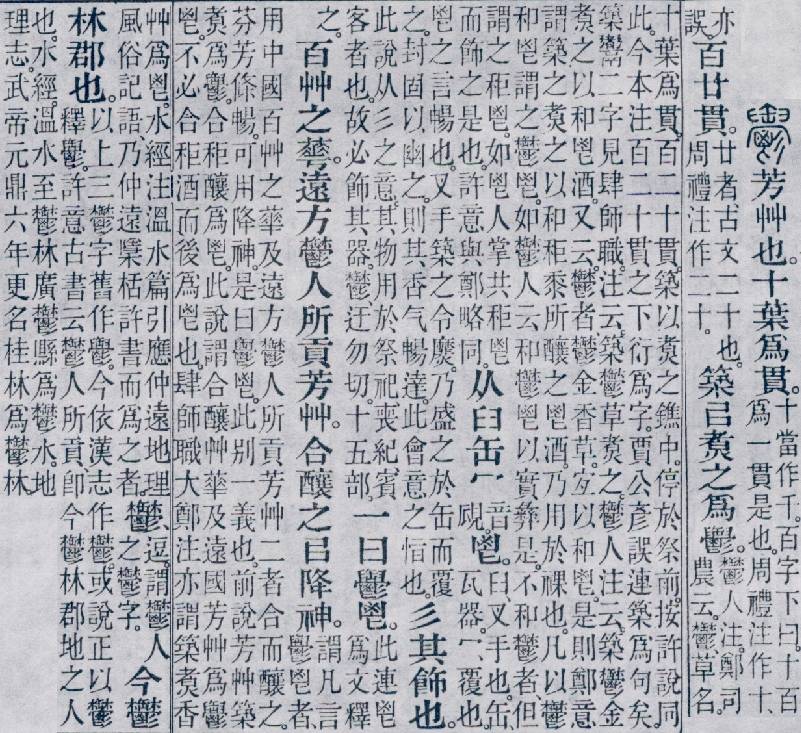 芳艸也。十葉爲貫。十當作千。百字下曰。十百
爲一貫是也。周禮注作十、
亦
誤。百廿貫。廿者、古文二十也。
周禮注作二十。築㠯煑之爲𩰪。鬱人注。鄭司
農云。鬱、草名。
十葉爲貫。百二十貫。築以煑之鐎中。停於祭前。按許說同
此。今本注百二十貫之下衍爲字。賈公彥誤連築爲句矣。
築鬻二字見肆師職。注云。築鬱草煑之。鬱人注云。築鬱金
煑之以和鬯酒。又云。鬱者、鬱金香草。宐以和鬯。是則鄭意
謂築之煑之以和秬黍所釀之鬯酒。乃用於祼也。凡以鬱
和鬯謂之鬱鬯。如鬱人云和鬱鬯以實彝是。不和鬱者、但
謂之秬鬯。如鬯人掌共秬鬯
而飾之是也。許意與鄭略同。从臼缶冖音
覛。鬯。臼、叉手也。缶、
瓦器。冖、覆也。
鬯之言暢也。叉手築之令糜。乃盛之於缶而覆
之封固以幽之。則其香气暢達。此會意之恉也。彡其飾也。
此說从彡之意。其物用於祭祀喪紀賓
客者也。故必飾其器。鬱迂勿切。十五部。一曰𩰪鬯。此連鬯
爲文釋
之。百艸之䔢。遠方鬱人所貢芳艸。合釀之㠯降神。謂凡言
𩰪鬯者、
用中國百艸之䔢及遠方鬱人所貢芳艸二者合而釀之。
芬芳條暢。可用降神。是曰𩰪鬯。此別一義也。前說芳艸築
煑爲𩰪。合秬釀爲鬯。此說謂合釀艸䔢及遠國芳艸爲𩰪
鬯。不必合秬酒而後爲鬯也。肆師職大鄭注亦謂築煑香
艸爲鬯。水經注溫水篇引應仲遠地理
風俗記語。乃仲遠檃栝許書而爲之者。鬱、逗。謂鬱人
之鬱字。今鬱
林郡也。以上三鬱字舊作𩰪。今依漢志作鬱。或說正以鬱
釋𩰪。許意古書云鬱人所貢、卽今鬱林郡地之人
也。水經。溫水至鬱林廣鬱縣爲鬱水。地
理志。武帝元鼎六年更名桂林爲鬱林